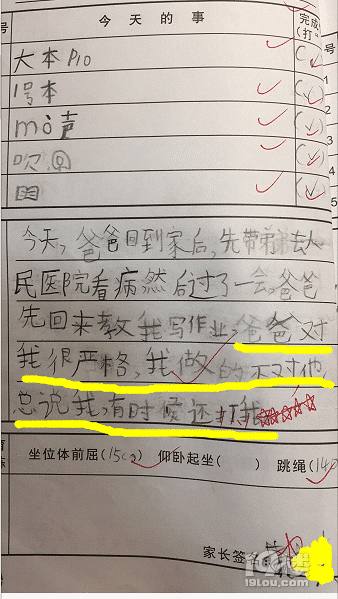 号 今天的事 完成(打 号
大本P10 (✓)
1号本 (✓) 1
mò声 (✓) 2
吹 (✓) 3
(✓) 4
5
今天，爸爸回到家后，先带弟弟去人
民医院看病然后过了一会，爸爸
先回来教我写作业，爸爸对
我很严格，我做的不对他
总说我，有时候还打我
育
坐位体前屈(15cm) 仰卧起坐( ) 跳绳(140
家长签名
19楼
19lou.com